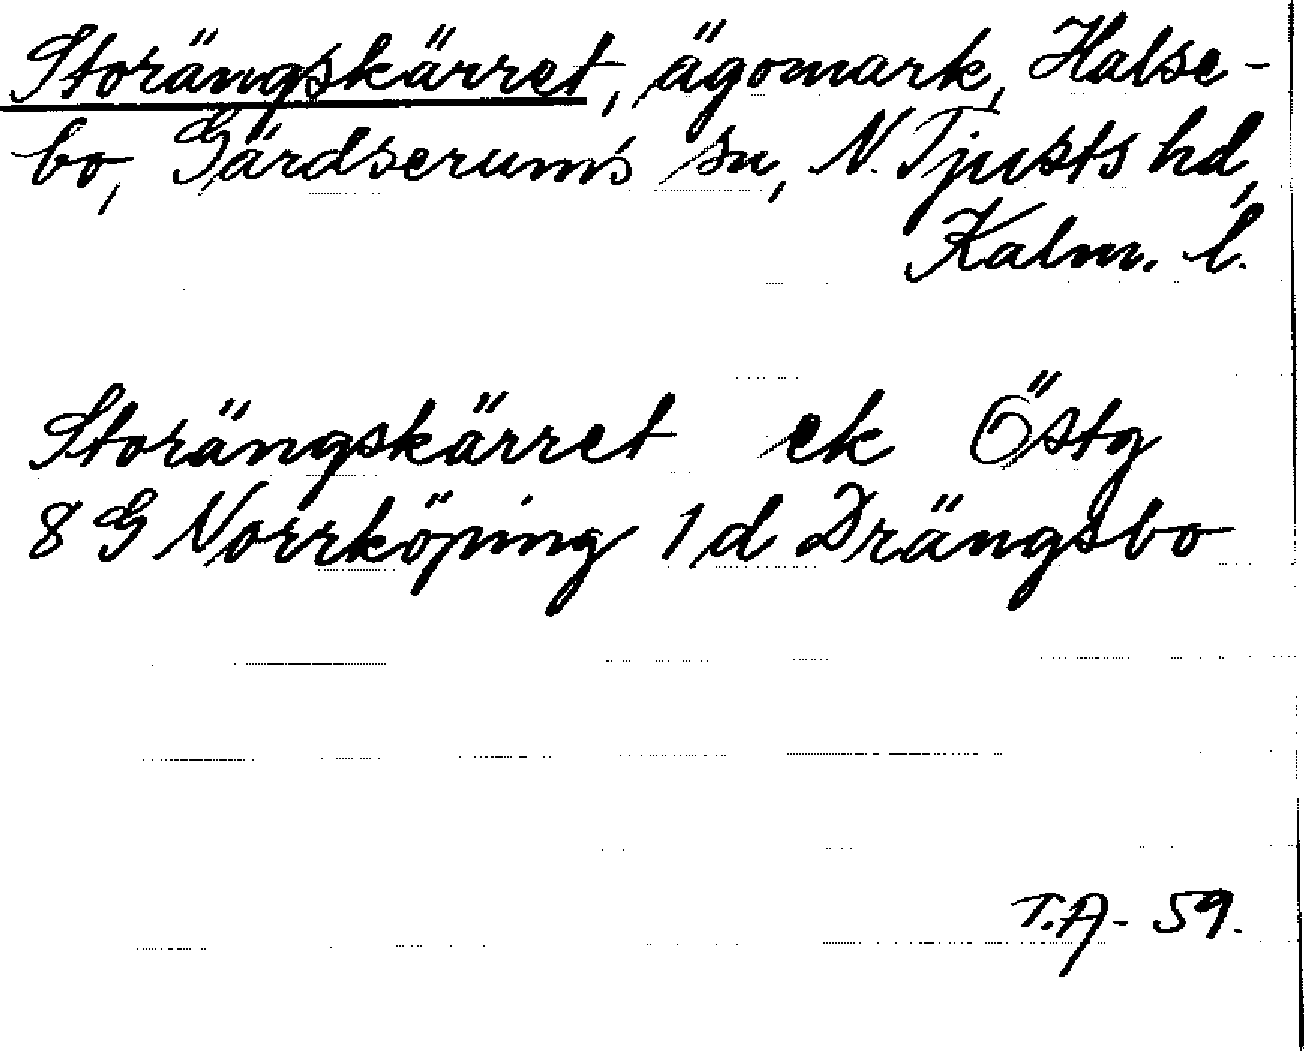 Storängskärret, ägomark, Halse-
bo, Gärdserums sn, N. Tjusts hd,
Kalm. l.
Storängskärret ek Östg
8 G Norrköping 1 d Drängsbo
T.A- 59.